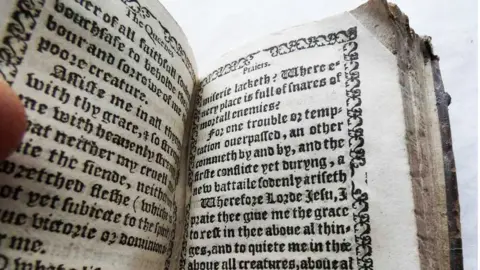 The Queenes
er of all faithfull
bouchsafe to beholde
bour and sorowe of me
poore creature.
Assiste me in all thy
with thy grace, & so stren
me with heauenly stren
hat neither my cruell
ate the fiende, neither
wretched fleshe (which
not yet subiecte to the spirit
ue victorie or dominion
r me.
O what
Praiers.
miserie lacketh? Where e-
uery place is full of snares of
mortall enemies?
For one trouble or temp-
tation ouerpassed, an other
commeth by and by, and the
firste conflicte yet duryng, a
new battaile sodenly ariseth
Wherefore Lorde Jesu, I
praie thee giue me the grace
to rest in thee aboue al thin-
ges, and to quiete me in thee
aboue all creatures, aboue al